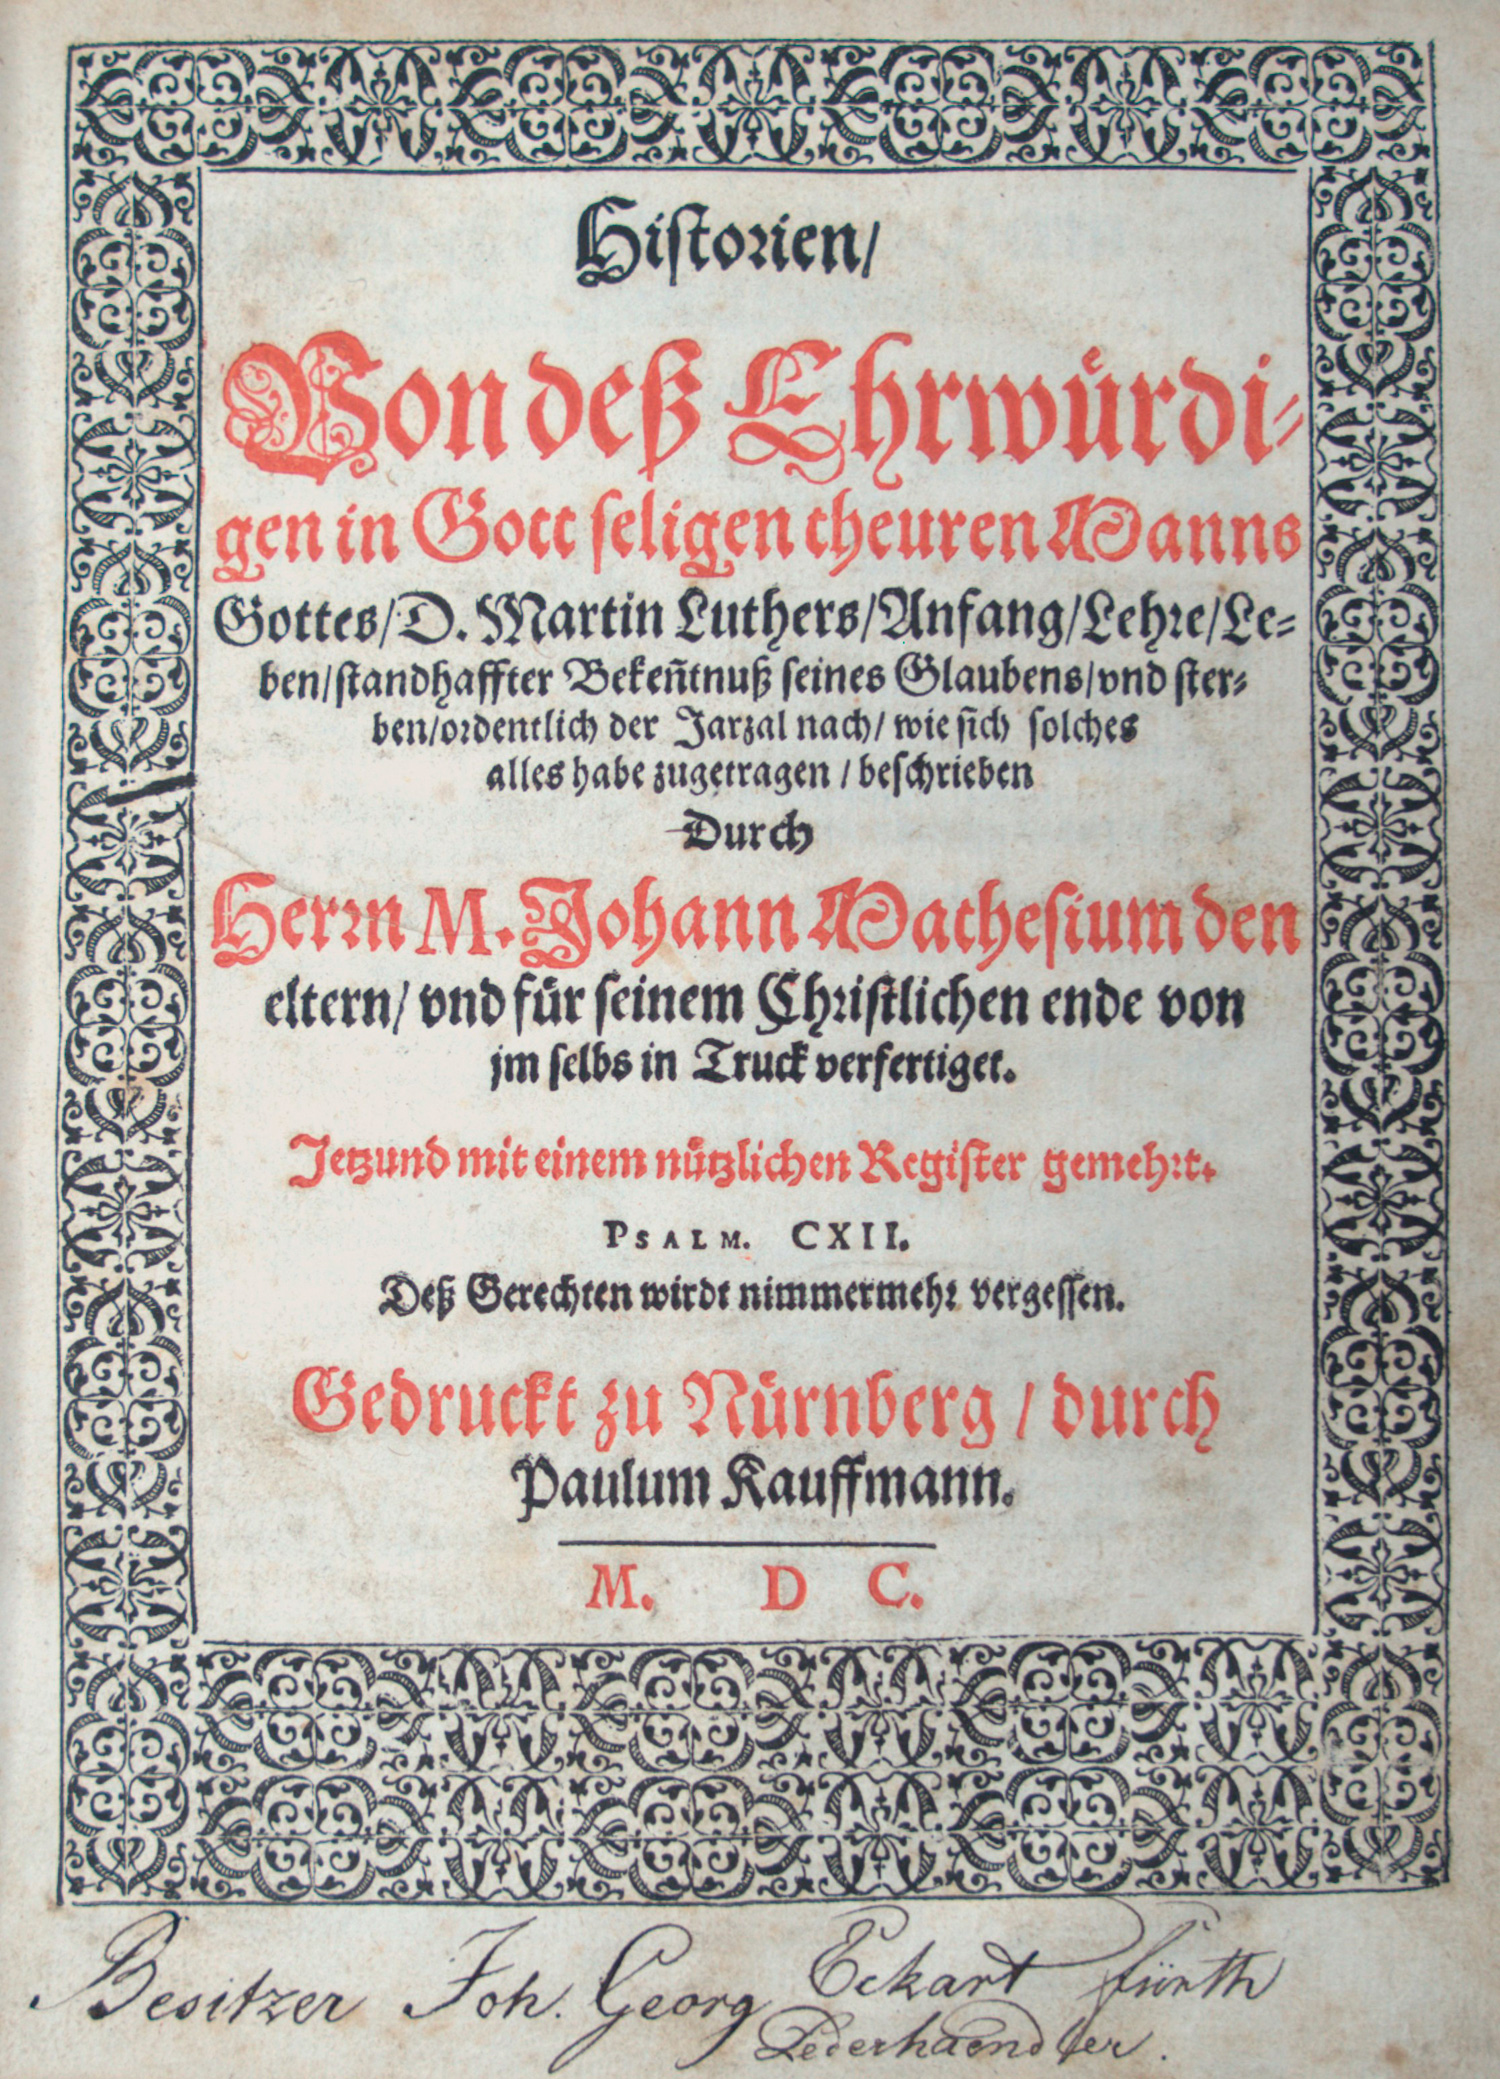 Historien/
Von deß Ehrwürdi-
gen in Gott seligen theuren Manns
Gottes/D. Martin Luthers/Anfang/Lehre/Le-
ben/standhaffter Bekeñtnuß seines Glaubens/vnd ster-
ben/ordentlich der Jarzal nach/ wie sich solches
alles habe zugetragen / beschrieben
Durch
Herrn M. Johann Mathesium den
eltern/ vnd für seinem Christlichen ende von
jm selbs in Truck verfertiget.
Jetzund mit einem nützlichen Register gemehrt.
PSALM. CXII.
Deß Gerechten wirdt nimmermehr vergessen.
Gedruckt zu Nürnberg / durch
Paulum Kauffmann.
M. D C.
Besitzer Joh. Georg Eckart fürth
Lederhaendler.